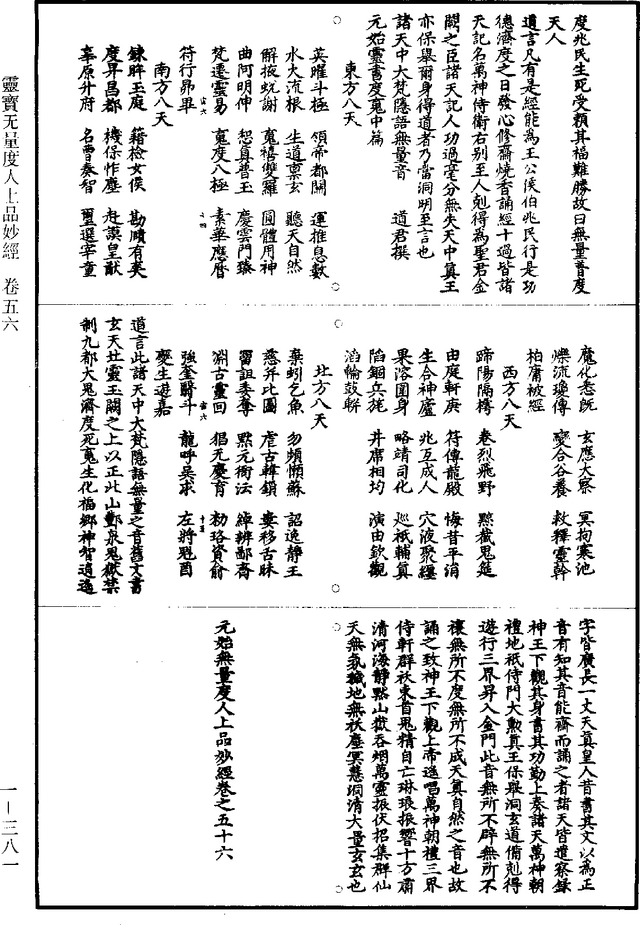 度兆民生死受賴其福難勝故曰無量普度
天人
道言凡有是經能為王公侯伯兆民行是功
德濟度之日發心修齋燒香誦經十過皆諸
天記名萬神侍衛右別至人剋得為聖君金
闕之臣諸天記人功過毫分無失天中真王
亦保舉爾身得道者乃當洞明至言也
諸天中大梵隱語無量音　道君撰
元始靈書度寬中篇
東方八天
英曜斗極　領帝都關　運推息數
水大流根　生道稟玄　聽天自然
解掖蛻謝　寬禧雙羅　圓體用神
曲阿明伸　恕真普玉　慶雲門臻
梵遷靈易　寬度八極　素華應曆
符行昴畢
南方八天
鍊胖玉庭　籍檢女俟　勘賾有美
度昇昌都　機保怍塵　赴謨皇猷
辜原升府　名曹奏智　璽選宰童
魔化悉旣　玄應大察　冥拘寒池
爍流瓊傳　變合谷養　救釋靈幹
柏庸被經
西方八天
蹄陽隔構　卷烈飛野　黥截鬼筵
由庭軒庚　符傳龍殿　悔昔平消
生合神廬　兆互成人　穴液聚纏
果溶園身　略靖司化　巡祇輔真
陷錮兵旄　井席相均　演由欽觀
滔輪鼓聯
北方八天
棄蚓乞魚　勿頻懶蘇　詔逸靜王
慈并比圖　虐古韓鎖　婁移舌昧
留詛委奪　黙元衛法　綽辨鄙齊
淵古靈回　猖元慶育　勑珞資俞
強奎翳斗　龍呼吳求　左將魁酉
變生遊嘉
道言此諸天中大梵隱語無量之音舊文書
玄天北靈王闕之上以正此山酆泉鬼獄禁
制九都大鬼濟度死寬生化福鄉神智逍遙
字皆廣長一丈天真皇人昔書其文以為正
音有知其音能齋而誦之者諸天皆遣察錄
神王下觀其身書其功勤上奏諸天萬神朝
禮地祇侍門大勳真王保舉洞玄道備剋得
遊行三界昇入金門此音無所不辟無所不
禳無所不度無所不成天真自然之音也故
誦之致神王下觀上帝遙唱萬神朝禮三界
侍軒群袄東首鬼精自亡琳琅振響十方肅
清河海靜黙山嶽吞烟萬靈振伏招集群仙
天無氛穢地無袄塵冥慧洞清大量玄玄也
元始無量度人上品妙經卷之五十六
靈寶无量度人上品妙經　卷五六
一—三八一